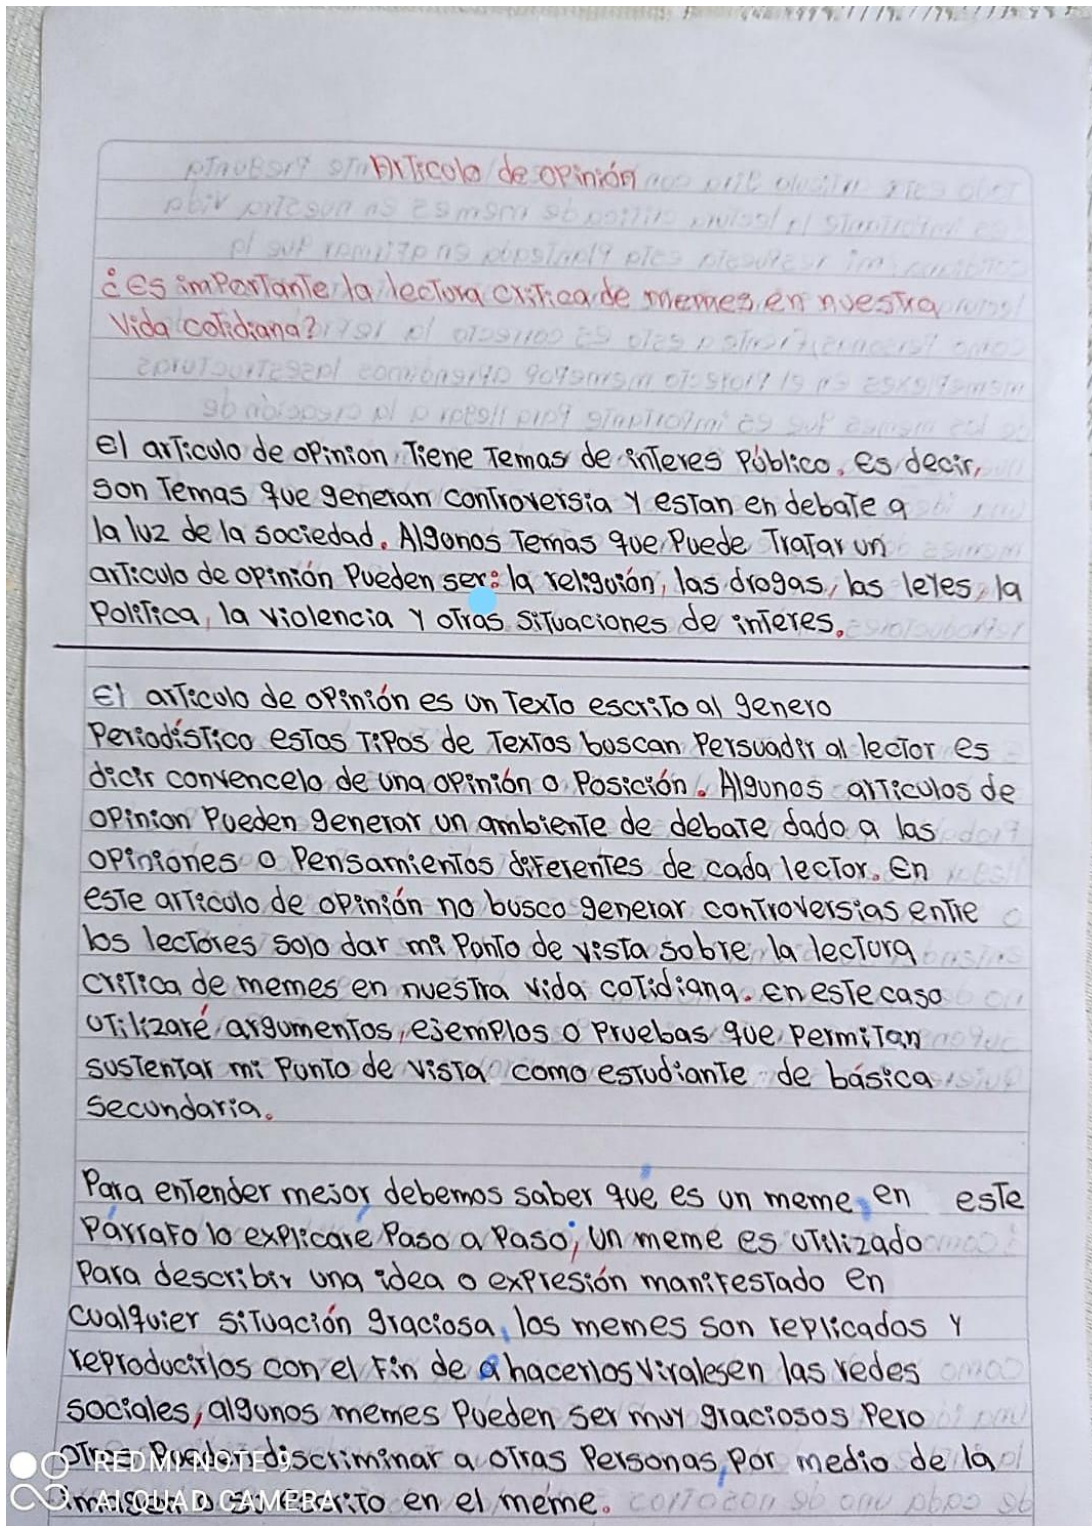 Articulo de opinión
¿Es importante la lectura critica de memes en nuestra
Vida cotidiana?
el articulo de opinion Tiene Temas de interes Público. Es decir,
son Temas que generan controversia y estan en debate a
la luz de la sociedad. Algunos Temas que Puede Tratar un
articulo de opinión Pueden ser: la religuión, las drogas, las leyes, la
Politica, la violencia y otras situaciones de interes.
El articulo de opinión es un Texto escrito al genero
Periodístico estos Tipos de Textos buscan Persuadir al lector es
dicir convencelo de una opinión o Posición. Algunos articulos de
opinion Pueden generar un ambiente de debate dado a las
opiniones o Pensamientos diferentes de cada lector. En
este articulo de opinión no busco generar controversias entre
los lectores solo dar mi Punto de vista sobre la lectura
critica de memes en nuestra vida cotidiana. En este caso
utilizaré argumentos, ejemplos o Pruebas que Permitan
sustentar mi Punto de vista como estudiante de básica
Secundaria.
Para entender mejor debemos saber qué es un meme, en este
Párrafo lo explicaré Paso a Paso; Un meme es utilizado
Para describir una idea o expresión manifestado en
cualquier situación graciosa, los memes son replicados y
reproducirlos con el fin de a hacerlos viralesen las redes
sociales, algunos memes Pueden ser muy graciosos Pero
otros Pueden discriminar a otras Personas, Por medio de la
escrito en el meme.
REDMI NOTE 9
AI QUAD CAMERA